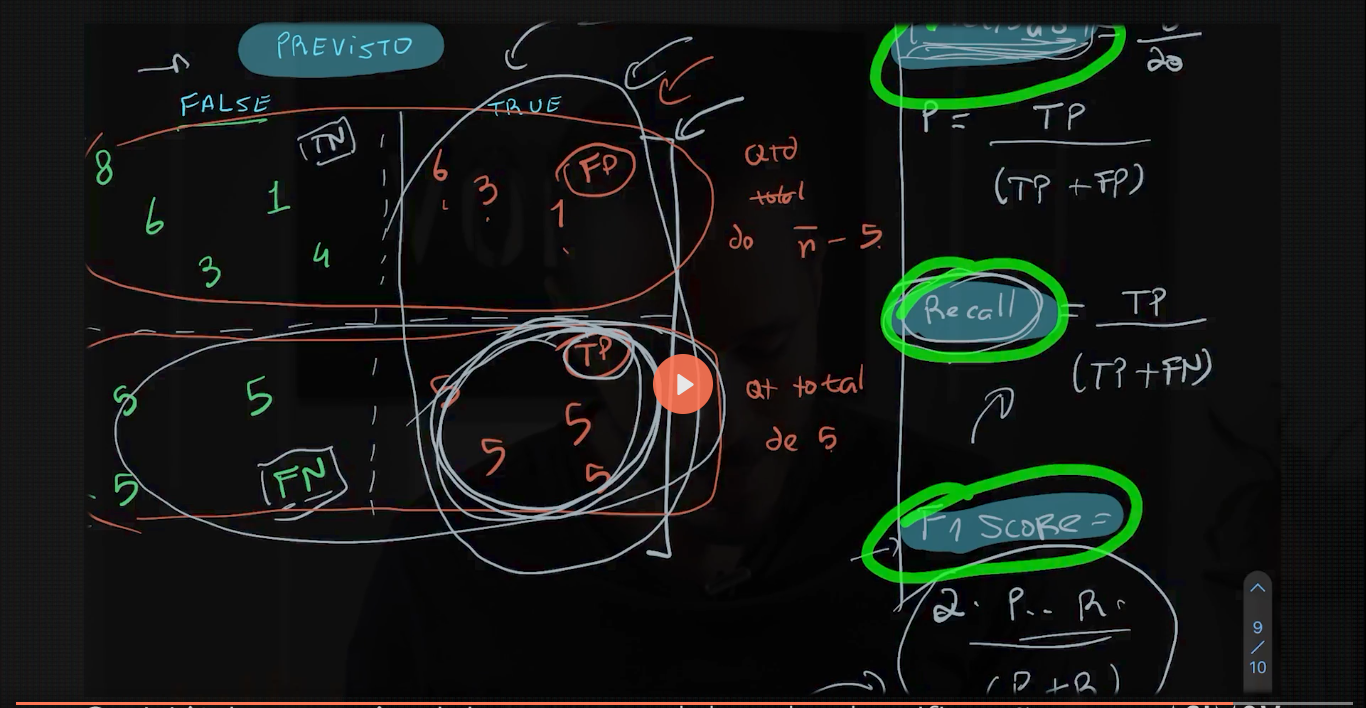 PREVISTO
FALSE TRUE
TN
8 6 1
3 4
6 3 1
FP
Qtd
total
do n̅ - 5
TP
5 5
5
FN
5 5
5 5
Qt total
de 5
20
P = TP
(TP + FP)
Recall = TP
(TP + FN)
F1 SCORE =
2 · P · R
(P + R)
9
/
10